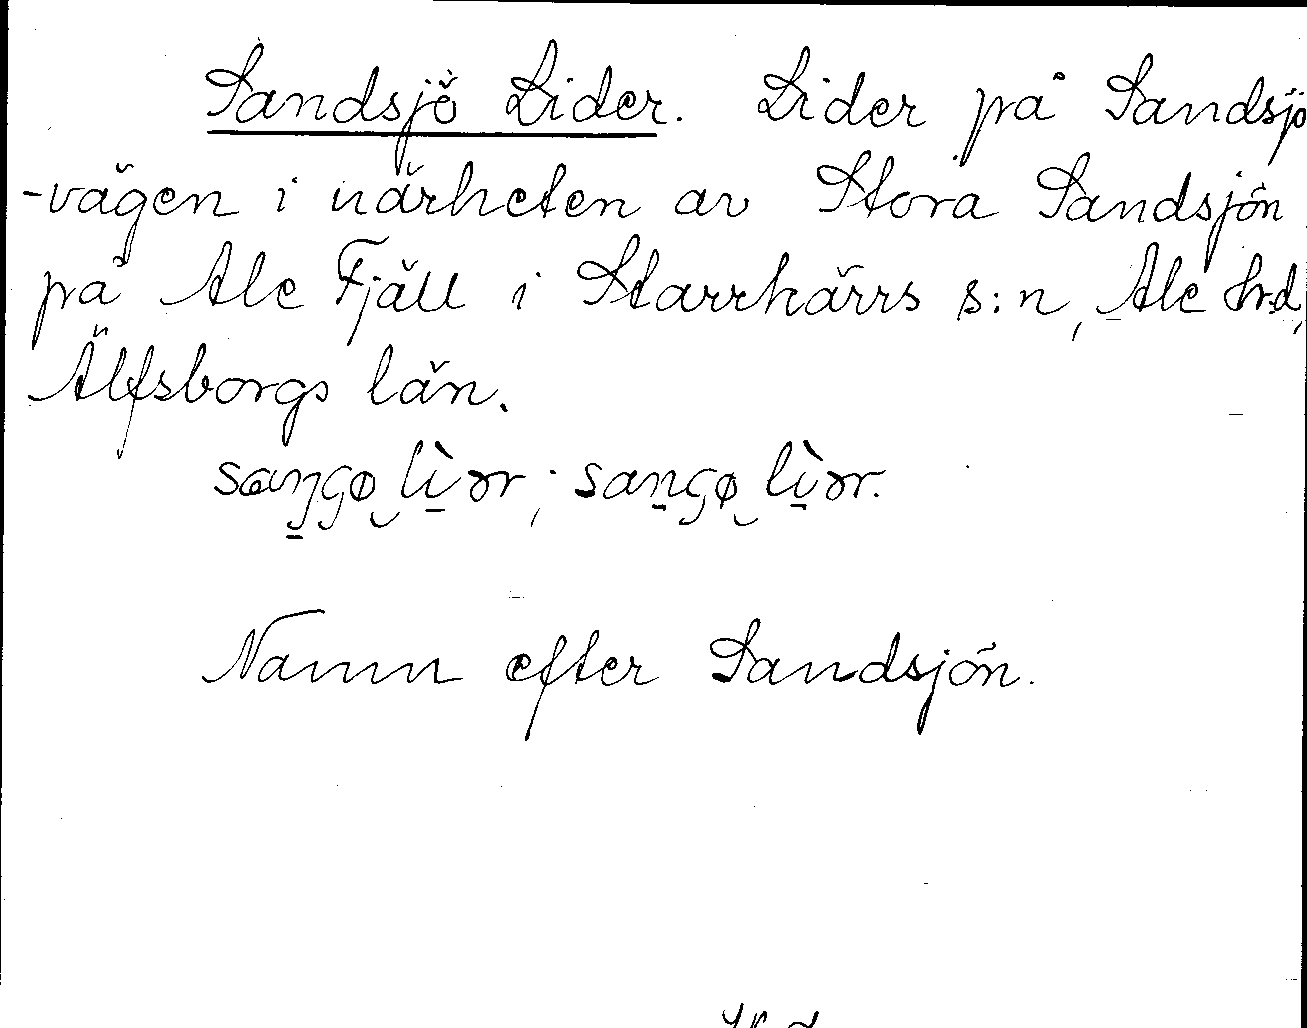 Sandsjö Lider. Lider på Sandsjö
-vägen i närheten av Stora Sandsjön
på Ale Fjäll i Starrkärrs s:n, Ale hrd,
Älfsborgs län.
Namn efter Sandsjön.